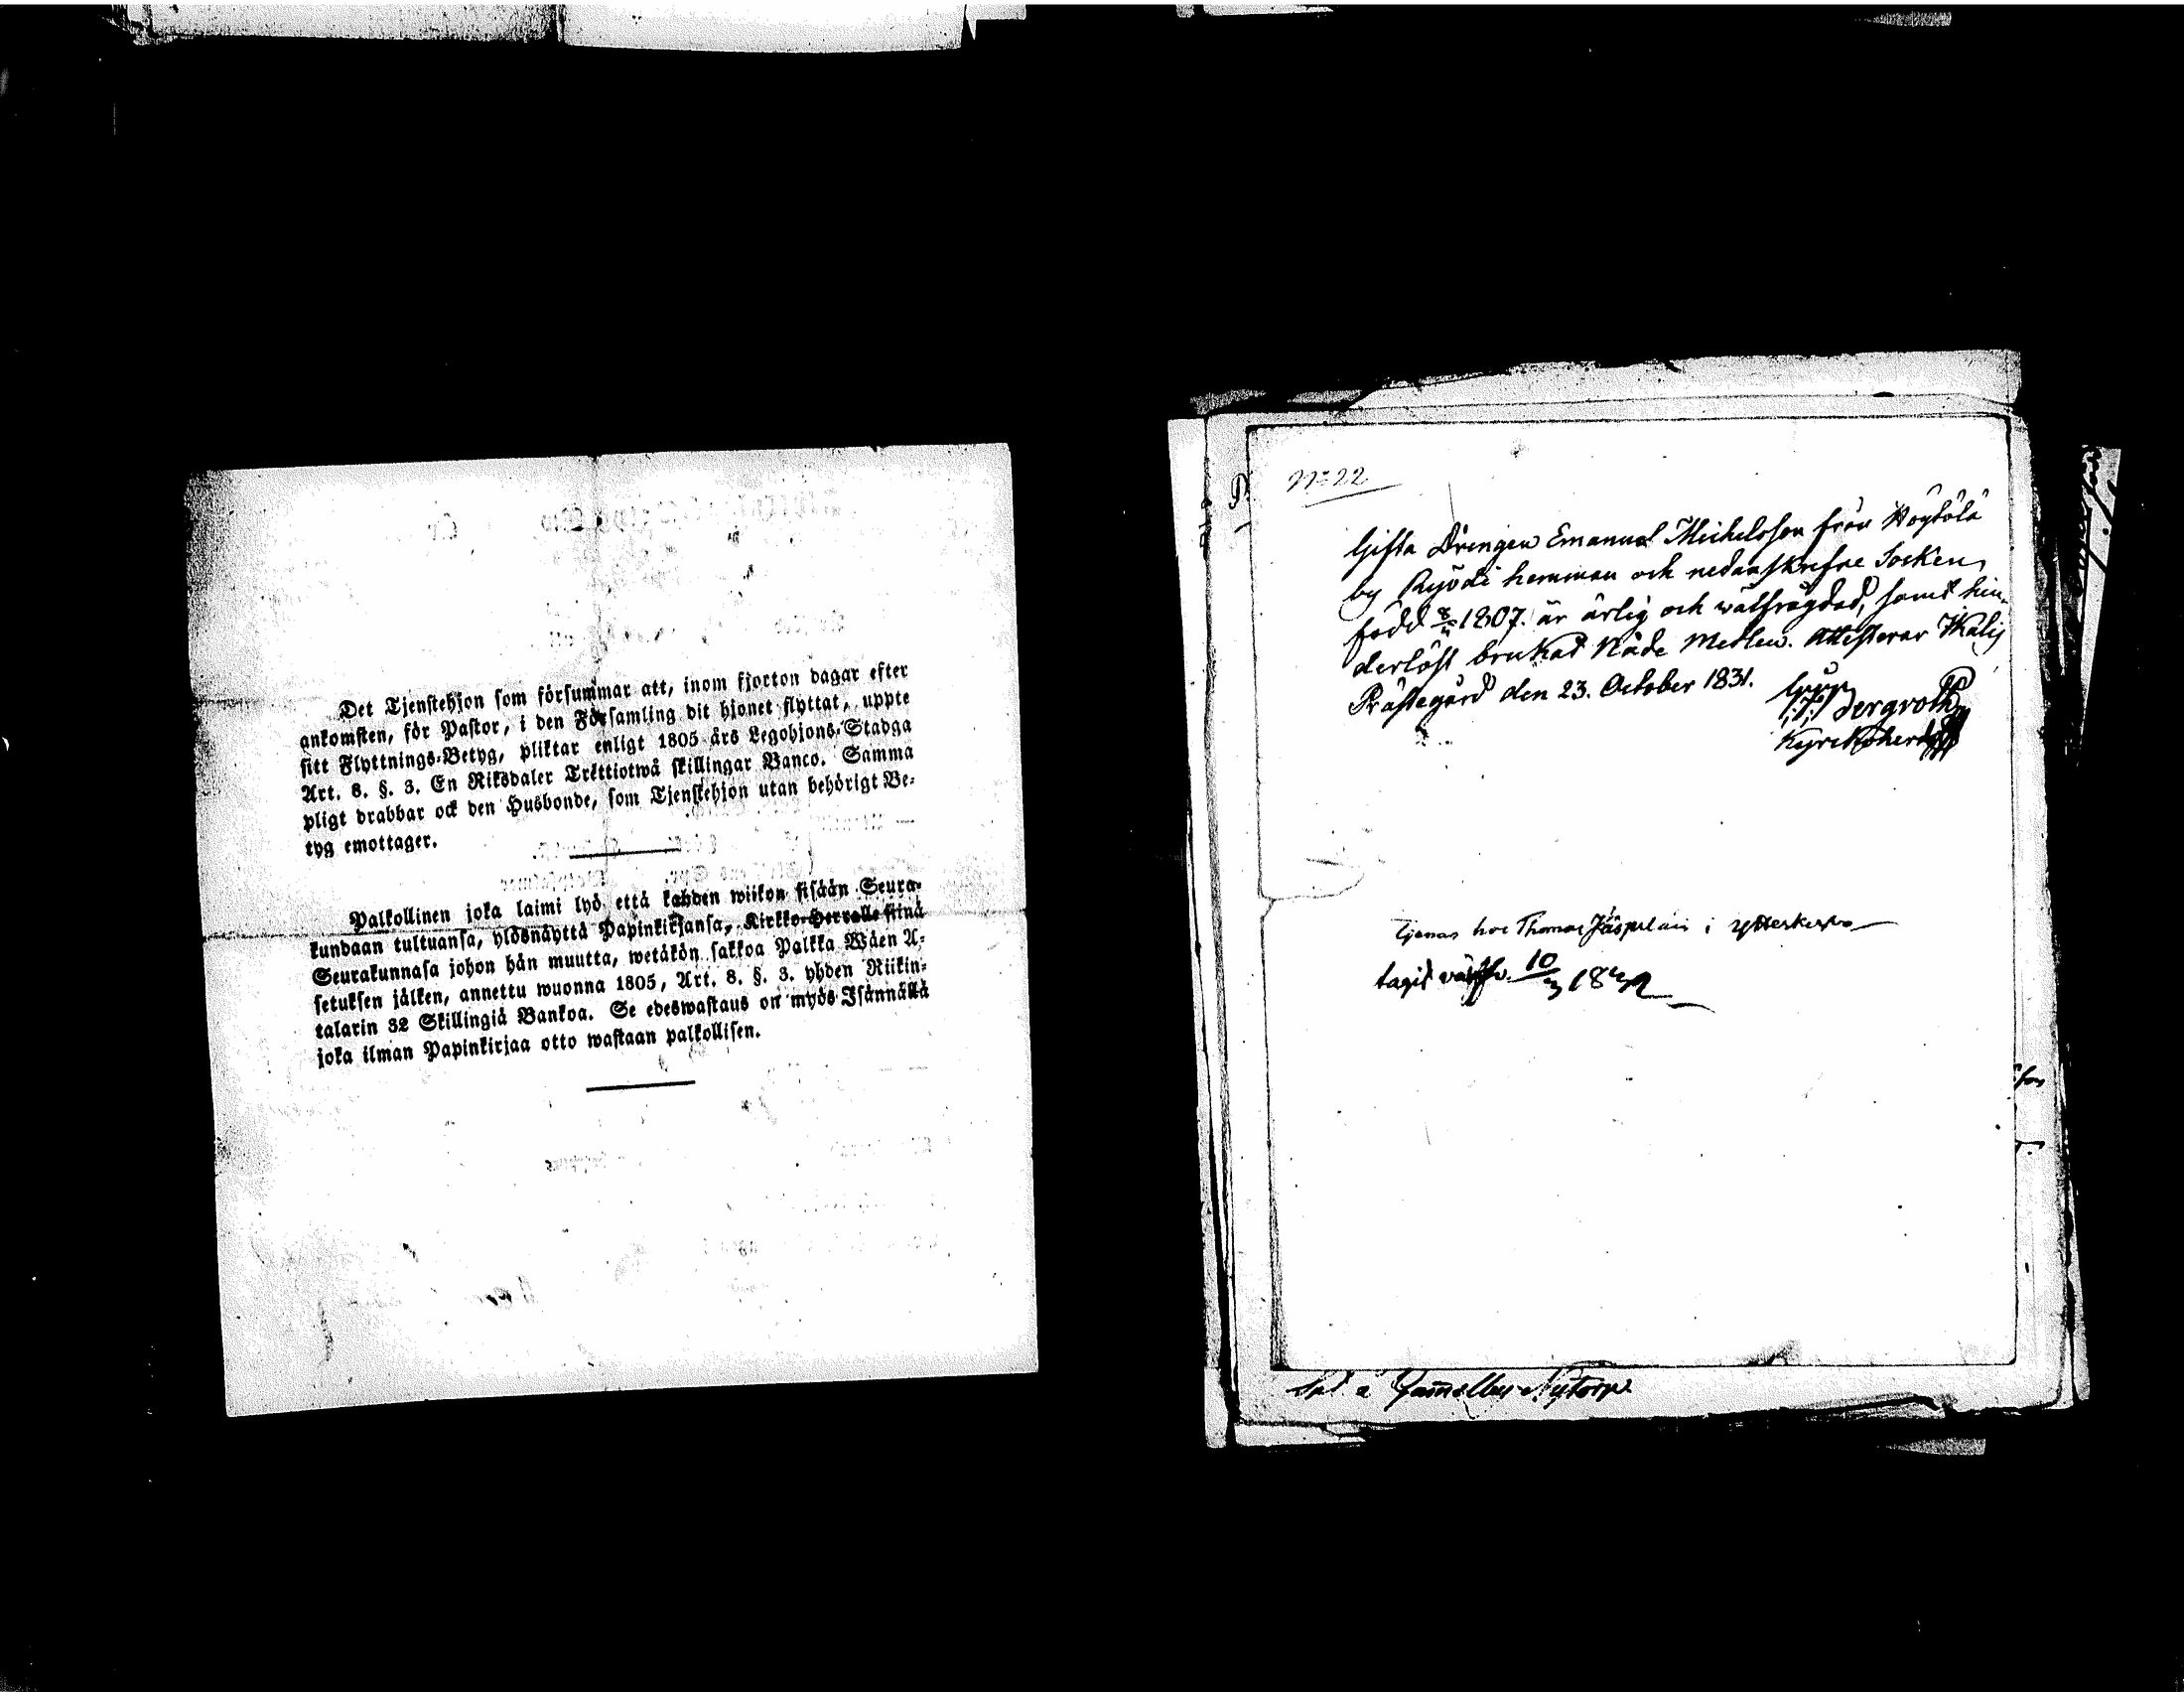 Det Tjenstehjon som försummar att, inom fjorton dagar efter
ankomsten, för Pastor, i den Församling dit hjonet flyttat, uppte
sitt Flyttnings-Betyg, pliktar enligt 1805 års Legohjons-Stadga
Art. 8. §. 3. En Riksdaler Trettiotwå skillingar Banco. Samma
pligt drabbar ock den Husbonde, som Tjenstehjon utan behörigt Be-
tyg emottager.
Palkollinen joka laimi lyö että kahden wiikon sisään Seura-
kundaan tultuansa, ylösnäyttä Papinkirjansa, Kirkko-Herralle siinä
Seurakunnasa johon hän muutta, wetäkön sakkoa Palkka Wäen A-
setuksen jälken, annettu wuonna 1805, Art. 8. §. 3. yhden Riikin-
talarin 32 Skillingiä Bankoa. Se edeswastaus on myös Isännällä
joka ilman Papinkirjaa otto wastaan palkollisen.
N:22
Gifta Drengen Emanuel Michelsson från
by Ryödi hemman och nedanskrefne Socken,
född 1807. är ärlig och wälfrägdad, samt hin-
derlöst brukat Nåde Medlen. Attesterar
Prästegård den 23. October 1831.
Bergroth
Kyrkoherde
Tjenar hos Thomas i
tagit 10
Gammelby Nytorp